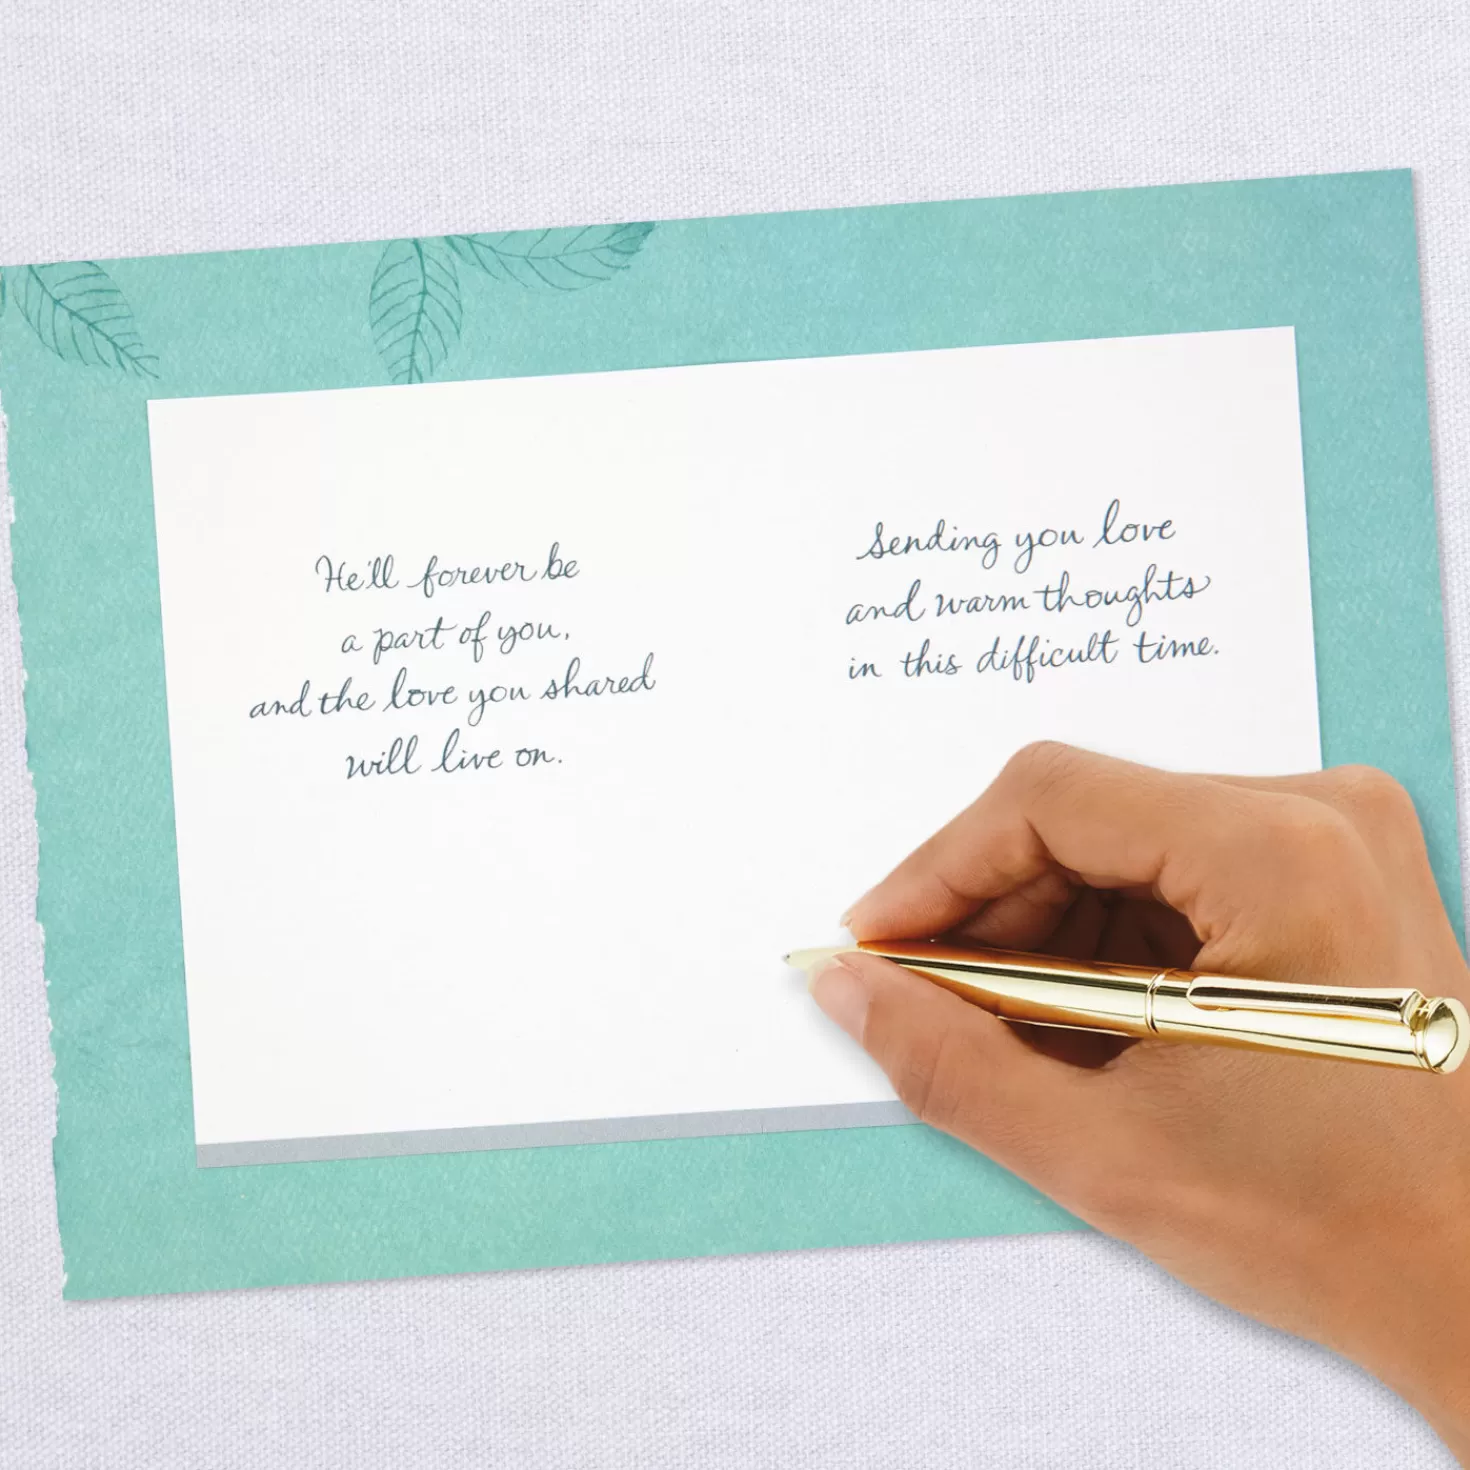 He'll forever be
a part of you,
and the love you shared
will live on.
Sending you love
and warm thoughts
in this difficult time.